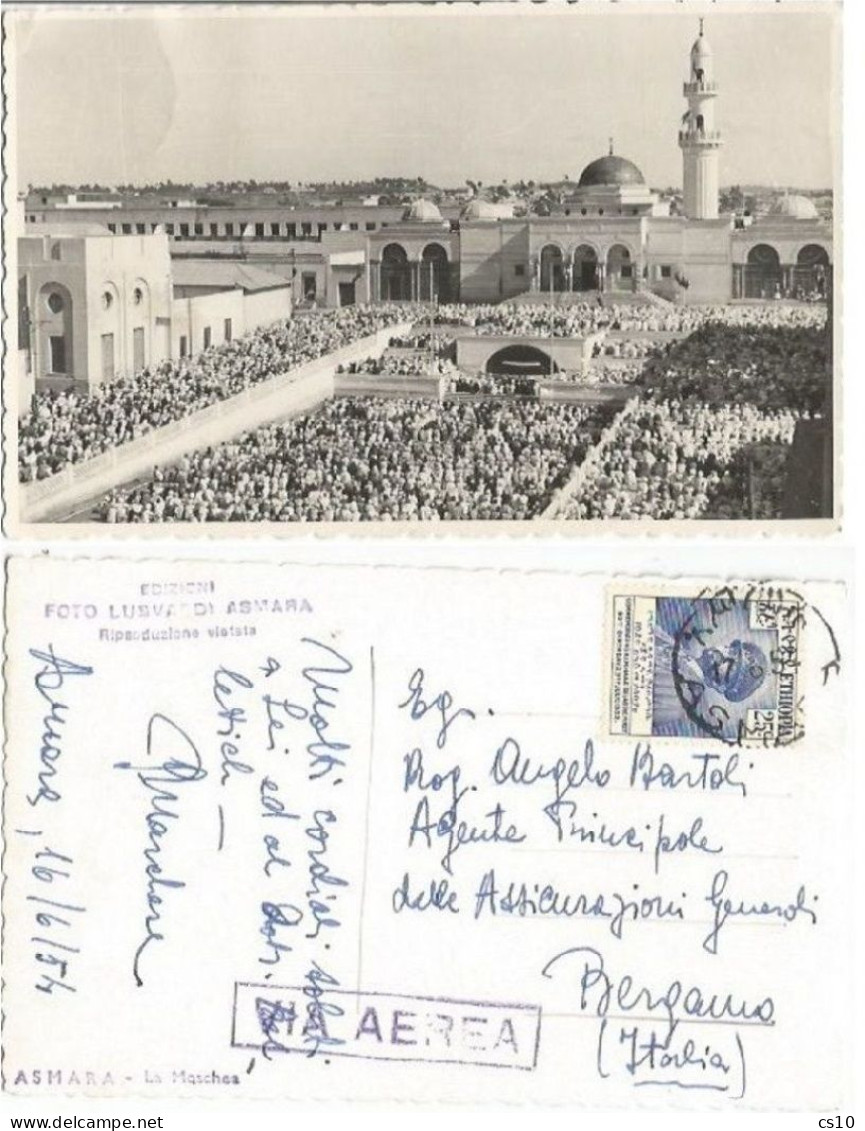 EDIZIONI
FOTO LUSVARDI ASMARA
Riproduzione vietata
Asmara, 16/6/54
Molti cordiali saluti
a Lei ed al Dott.
Eg.
Rag. Angelo Bartoli
Agente Principale
delle Assicurazioni Generali
Bergamo
(Italia)
VIA AEREA
ETHIOPIA
25c
ASMARA - La Moschea
cs10